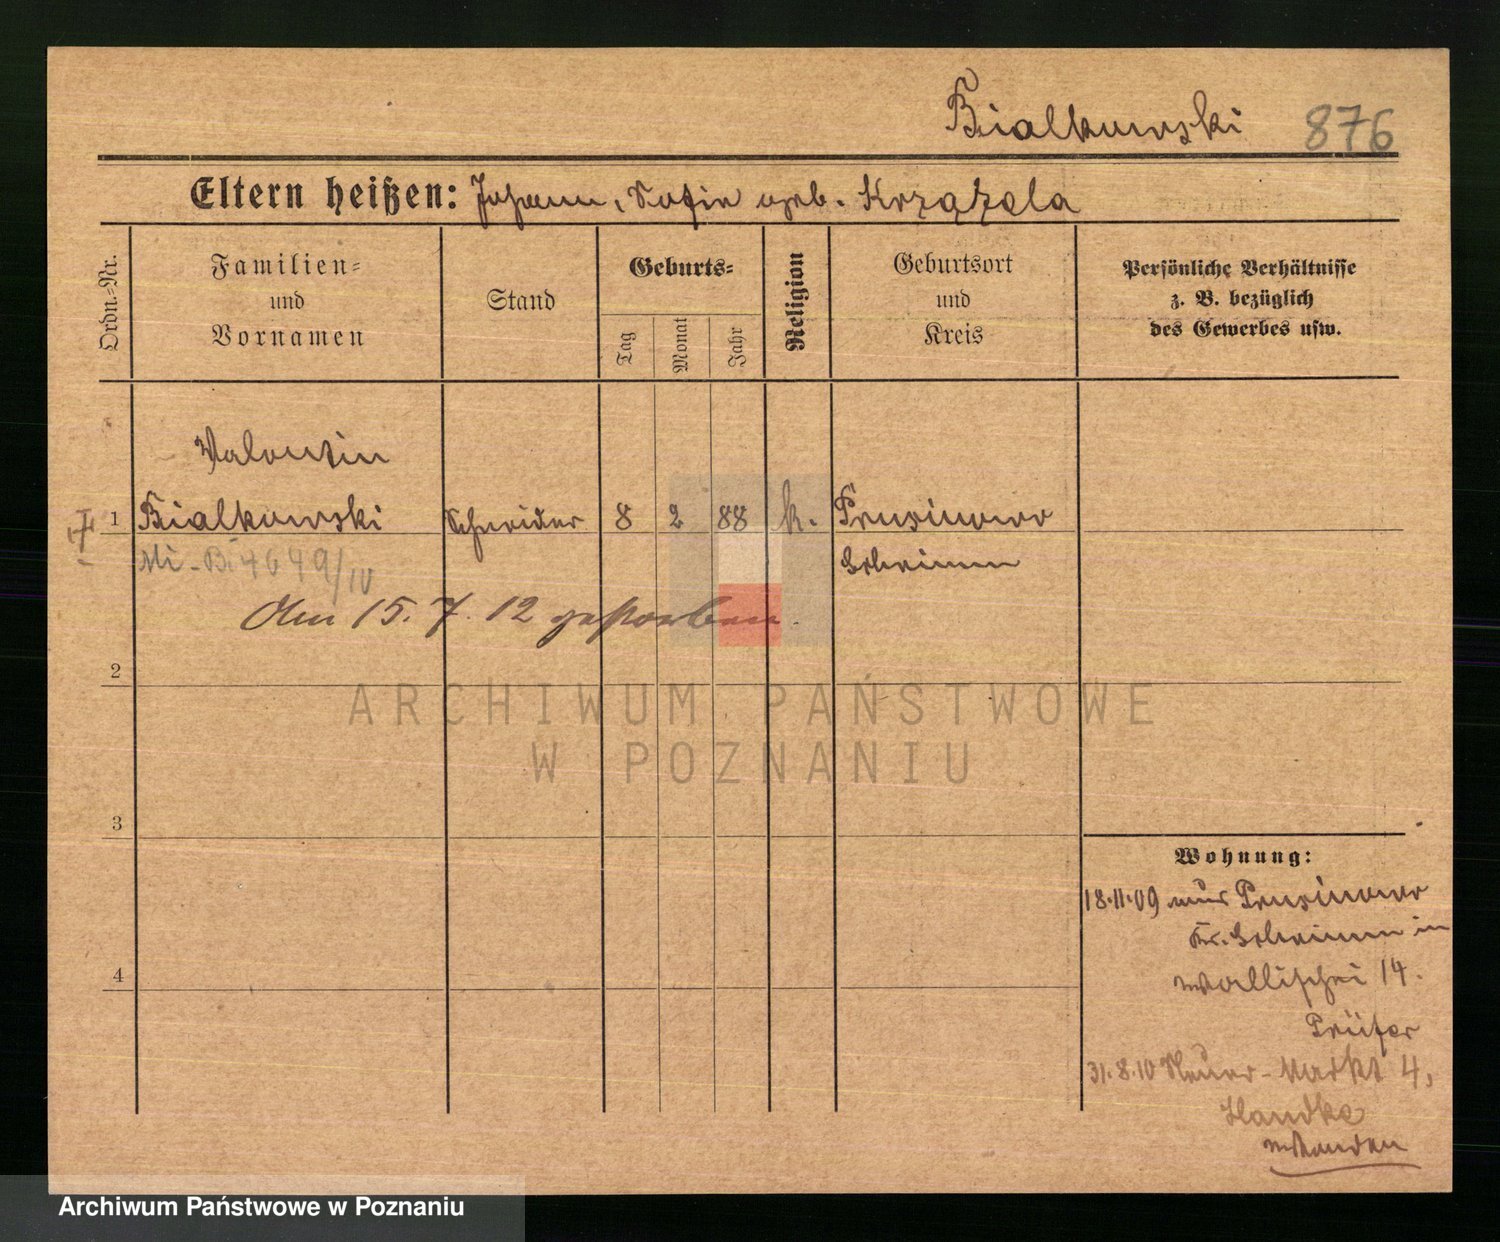 Bialkowski 876
Eltern heißen: Johann, Sofie geb. Krzązala
Ordn.-Nr.
Familien-
und
Vornamen
Stand
Geburts-
Tag
Monat
Jahr
Religion
Geburtsort
und
Kreis
Persönliche Verhältnisse
z. B. bezüglich
des Gewerbes usw.
Valentin
1 Bialkowski Schneider 8 2 88 k. Prusinowo
Schrimm
Am 15.7.12 gestorben.
2
3
4
Wohnung:
18.11.09 aus Prusinowo
Kr. Schrimm in
Wallischei 14.
Prüfer
31.8.10 Neuer-Markt 4,
Handke
ARCHIWUM PAŃSTWOWE
W POZNANIU
Archiwum Państwowe w Poznaniu